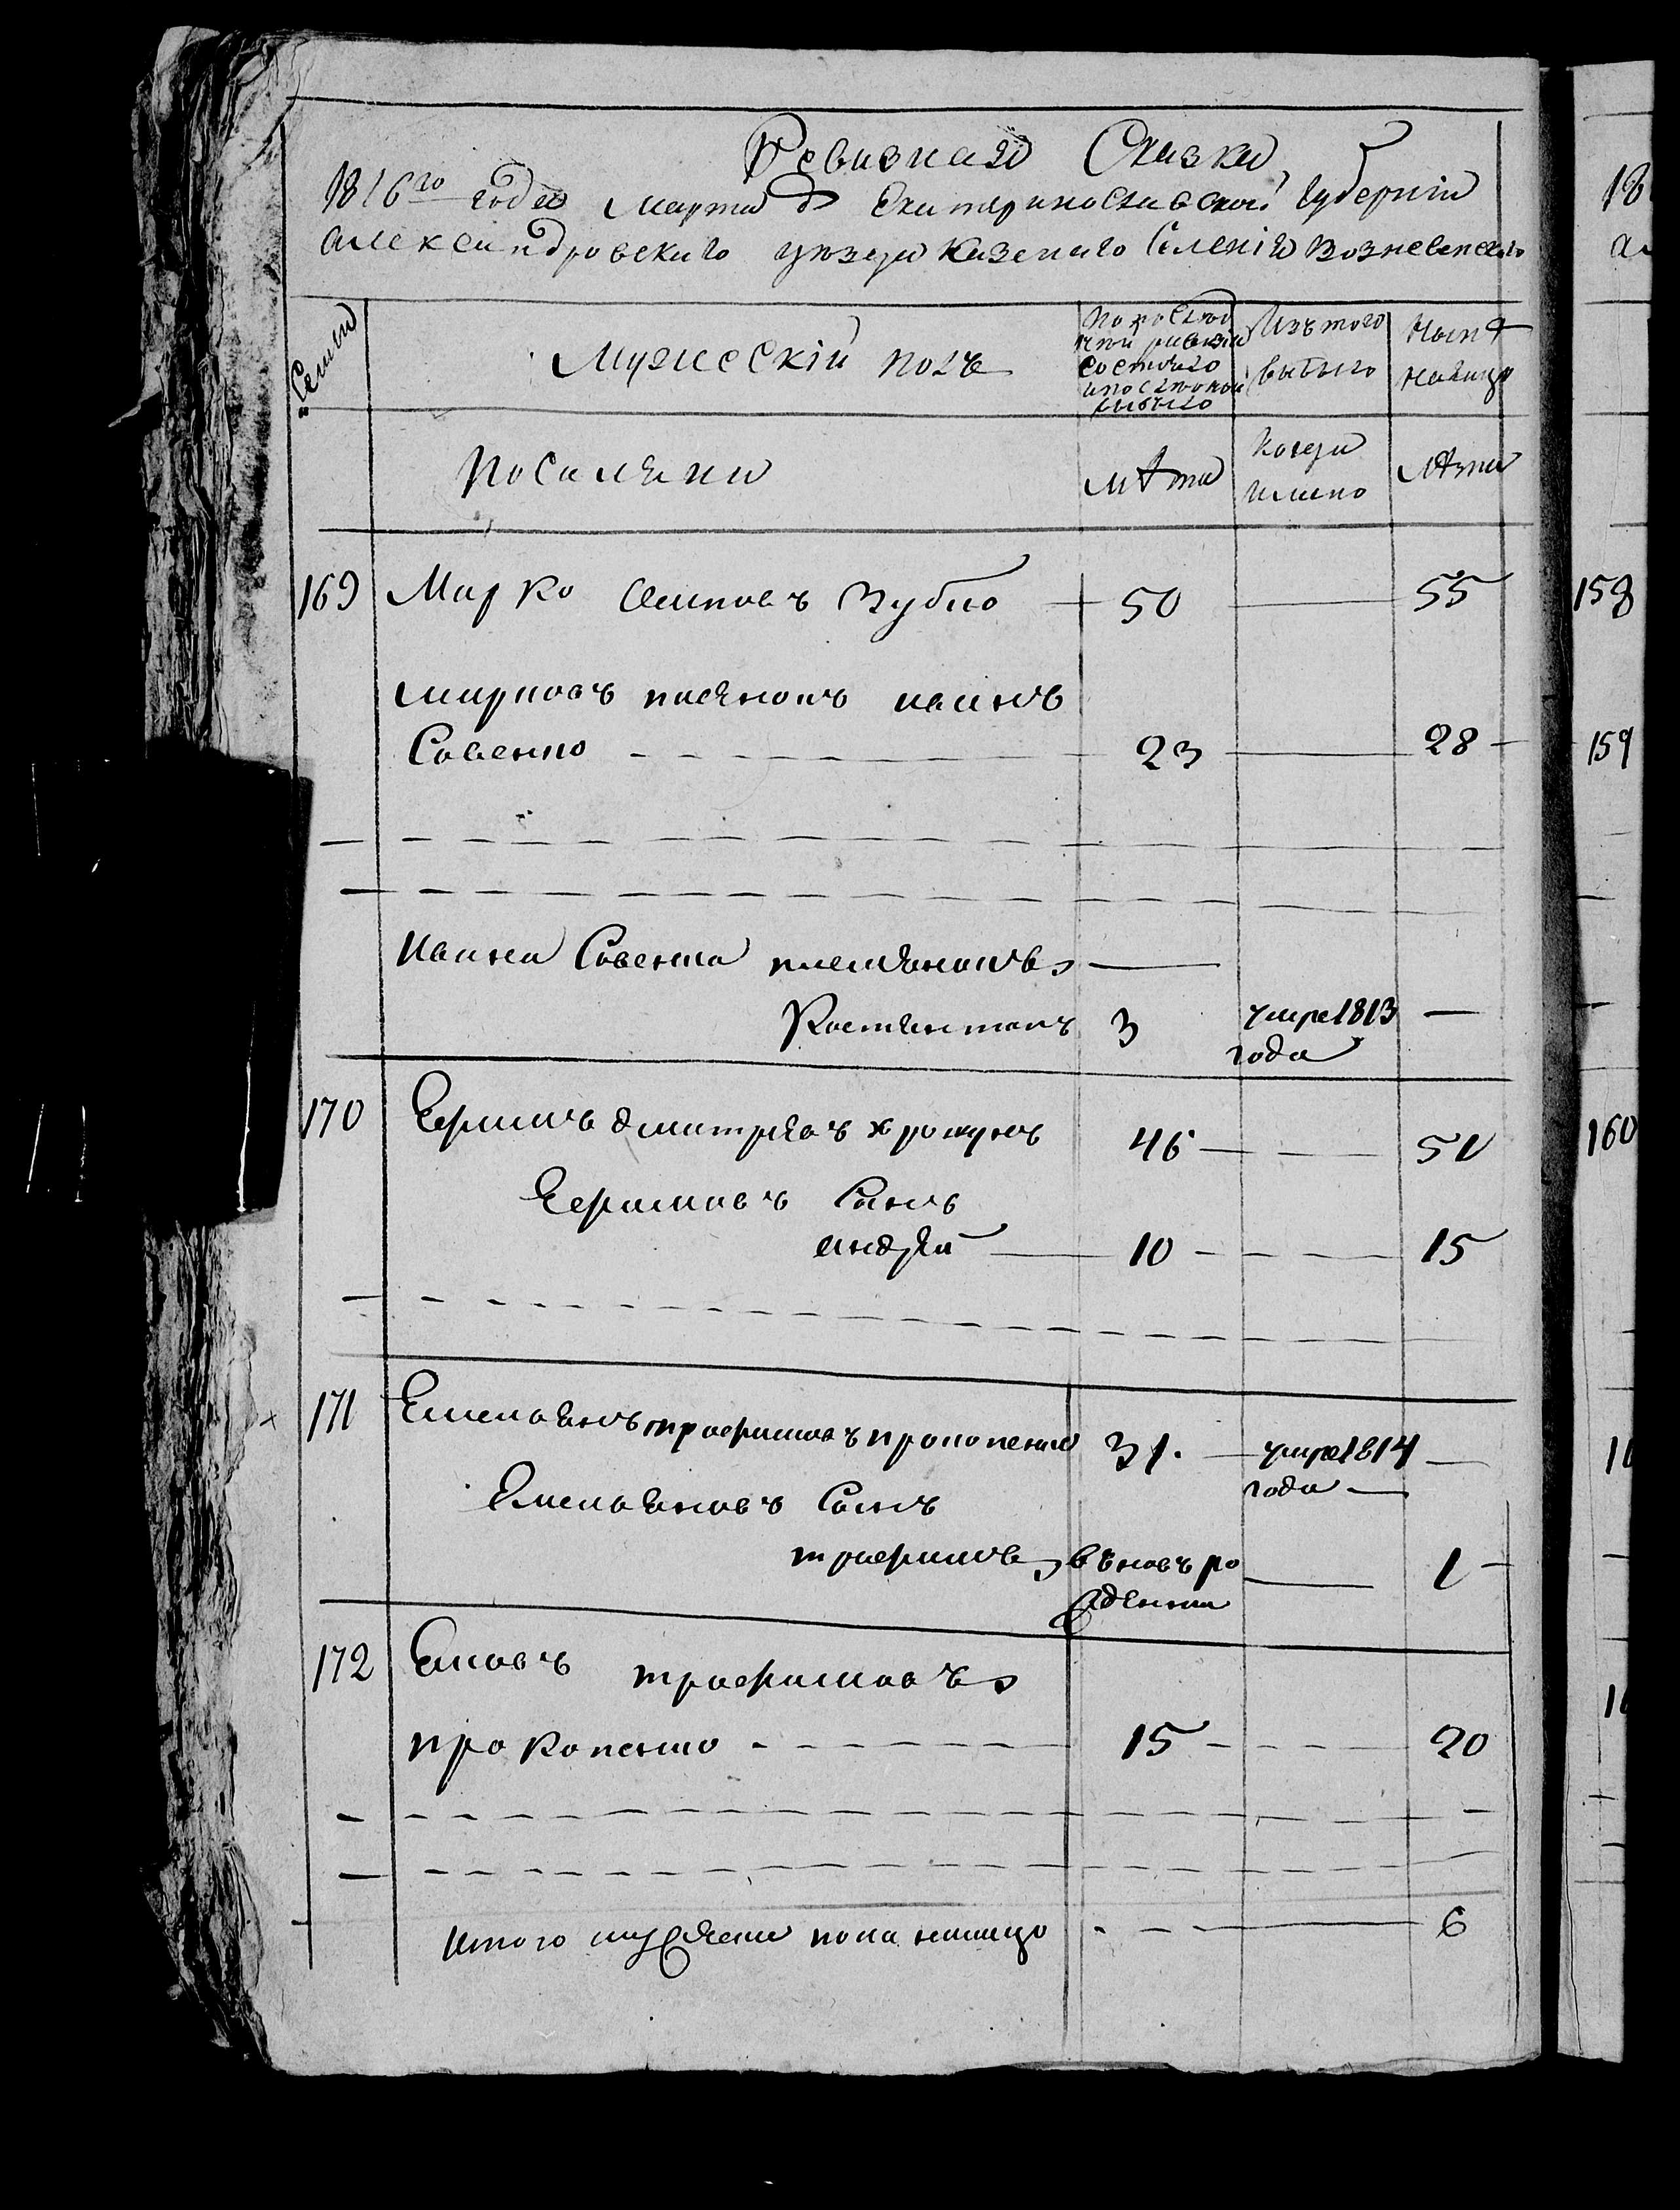 Ревизная Сказка
1816го года Марта Екатеринославской Губернiи
Александровскаго уѣзда Казенаго Селенiя Вознесенскаго
Семьи
Мужескiй полъ
По последней ревизiи состояло и после оной прибыло
Изъ того выбыло
Нынѣ налицо
Поселяни
Лѣта
Когда имено
Лѣта
169 Марко Осиповъ Зубко 50 55
Марковъ пасынокъ иванъ
Савенко 23 28
Ивана Савенка племянникъ
Костянтинъ 3 умре 1813 года
170 Ефимъ дмитревъ 46 51
Ефимовъ Сынъ
андрей 10 15
171 Емельянъ трофимовъ прокопенко 31. умре 1814 года
Емельяновъ Сынъ
трофимъ вновь рожденни 1
172 трофимовъ
прокопенко 15 20
итого мужеска пола налицо 6
18
158
159
160